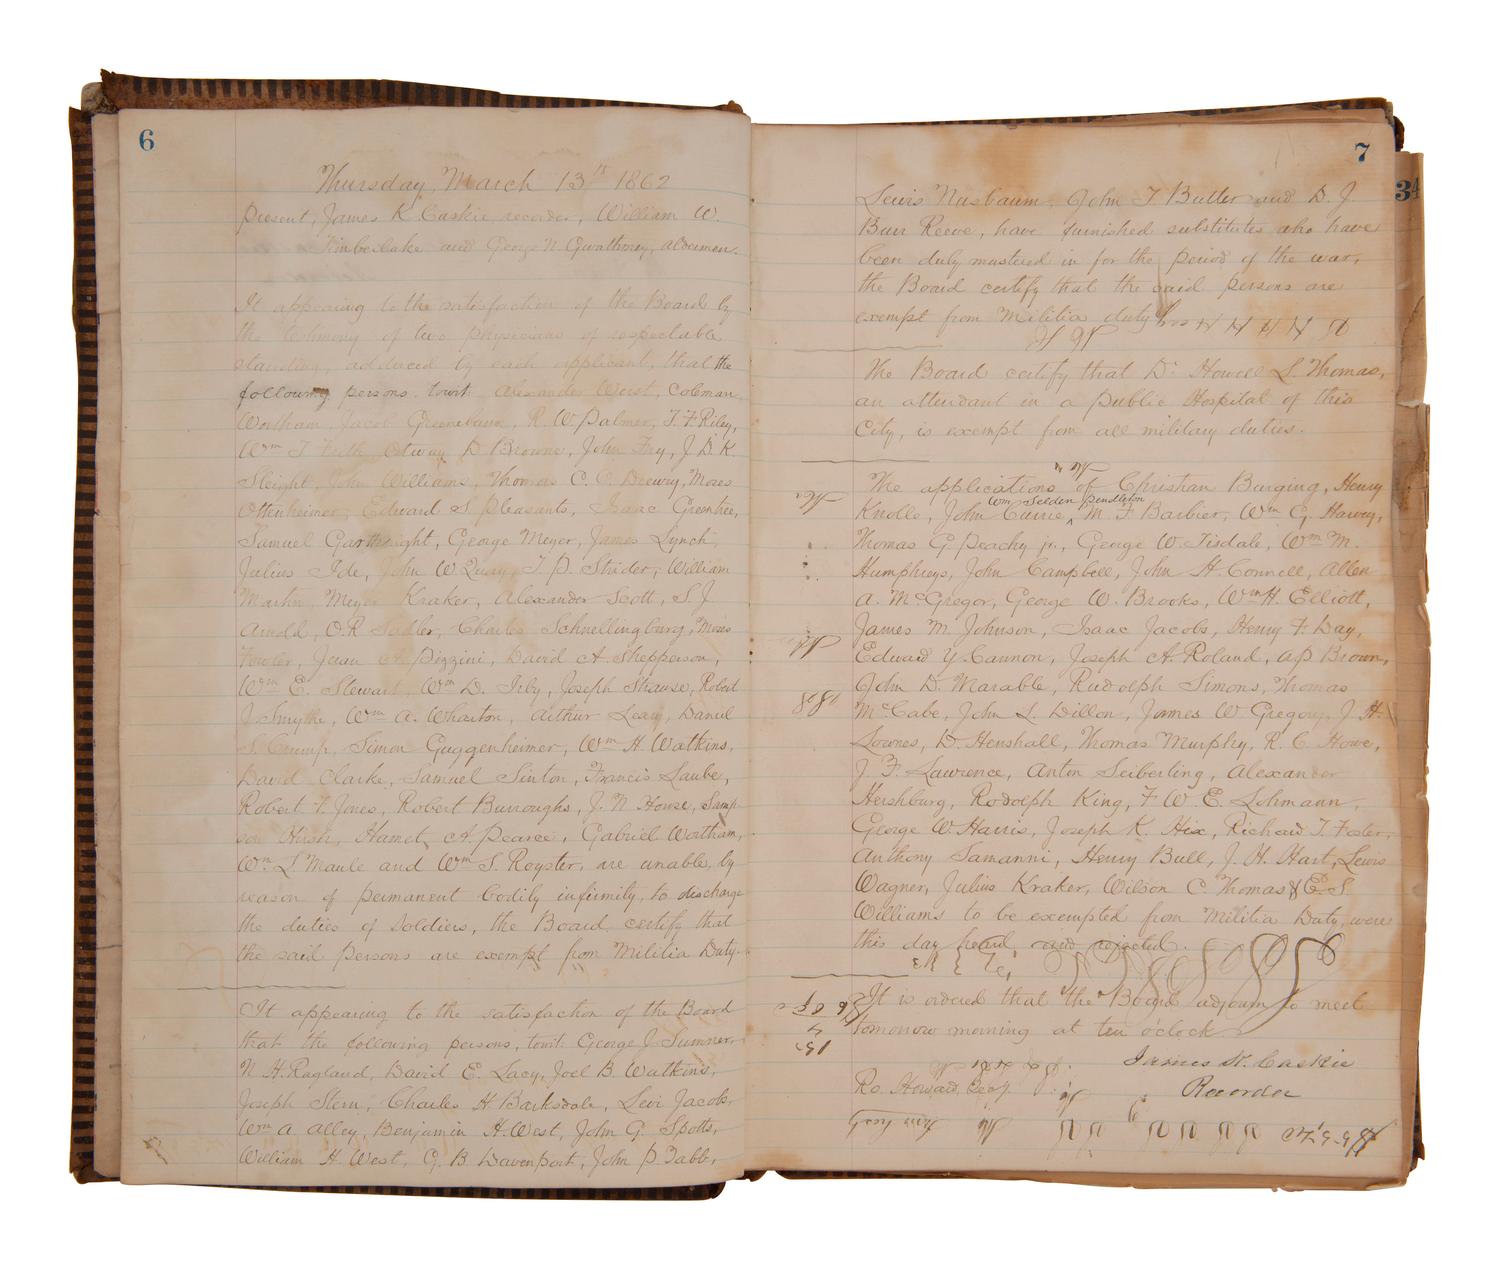 6
Thursday, March 13th 1862
present, James K Caskie, recorder, William W.
Timberlake and George N Gwathmey, aldermen.
It appearing to the satisfaction of the Board by
the testimony of two physicians of respectable
standing, adduced by each applicant, that the
following persons. towit Alexander West, Coleman
Wortham, Jacob Greenebaum, R W Palmer, T. F. Riley,
Wm T Otway D Browne, John Fry, J D. K.
Sleight, John Williams, Thomas C. Drewry, Moses
Ottenheimer, Edward S. Pleasants, Isaac Greentree,
Samuel Garthright, George Meyer, James Lynch,
Julius Ide, John W Quay, T. P. Strider, William
Martin, Meyer Kraker, Alexander Scott, S. J
Arnold, O. R Sadler, Charles Schnellingburg, Moses
Fowler, Juan A Pizzini, David A. Shepperson,
Wm E. Stewart, Wm D. Irby, Joseph Strause, Robert
J. Smythe, Wm A. Wharton, Arthur Leary, Daniel
S. Crump, Simon Guggenheimer, Wm H Watkins,
David Clarke, Samuel Sinton, Francis Laube,
Robert F. Jones, Robert Burroughs, J. N House, Samp
son Hirsh, Hamet A Pearce, Gabriel Wortham,
Wm L Maule and Wm S. Royster, are unable, by
reason of permanent bodily infirmity, to discharge
the duties of soldiers, the Board certify that
the said persons are exempt from Militia Duty.
It appearing to the satisfaction of the Board
that the following persons, towit: George J. Sumner,
N H. Ragland, David E. Lacy, Joel B. Watkins,
Joseph Stern, Charles H Barksdale, Levi Jacobs,
Wm A. Alley, Benjamin H. West, John G. Spotts,
William H. West, G. B. Davenport, John P. Tabb,
7
34
Lewis Nusbaum, John T Butler and D J
Burr Reeve, have furnished substitutes who have
been duly mustered in for the period of the war,
the Board certify that the said persons are
exempt from Militia duty
The Board certify that Dr Howell L. Thomas,
an attendant in a public Hospital of this
City, is exempt from all military duties.
The applications of Christian Burging, Henry
Wm Selden Pendleton
Knolle, John Currie, M. F Barbier, Wm G. Harvey,
Thomas G Peachy jr., George W. Tisdale, Wm M.
Humphreys, John Campbell, John H Connell, Allen
A. McGregor, George W. Brooks, Wm H. Elliott,
James M. Johnson, Isaac Jacobs, Henry F. Day,
Edward Y Cannon, Joseph A. Roland, A P Brown,
John D. Marable, Rudolph Simons, Thomas
McCabe, John L. Dillon, James W Gregory, J. H.
Lownes, D. Henshall, Thomas Murphy, R. C. Howe,
J. F. Lawrence, Anton Seiberling, Alexander
Hershburg, Rodolph King, F W E. Lohmann,
George W. Harris, Joseph K. Hix, Richard T. Foster,
Anthony Samanni, Henry Bull, J. H. Hart, Lewis
Wagner, Julius Kraker, Wilson C Thomas & E. S.
Williams to be exempted from Militia Duty, were
this day heard, and rejected.
It is ordered that the Board adjourn to meet
tomorrow morning at ten o'clock
James K. Caskie
Recorder
Ro. Howard, Secy.